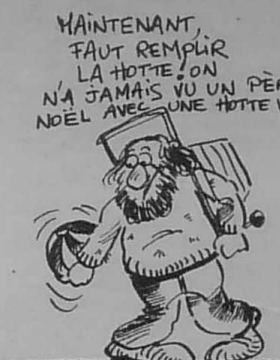 MAINTENANT,
FAUT REMPLIR
LA HOTTE! ON
N'A JAMAIS VU UN
NOËL AVEC UNE HOTTE